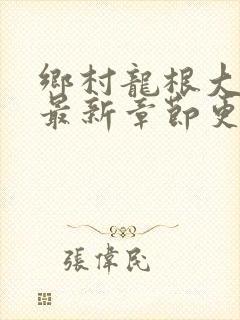 鄉村龍根大
最新章節更
張偉民